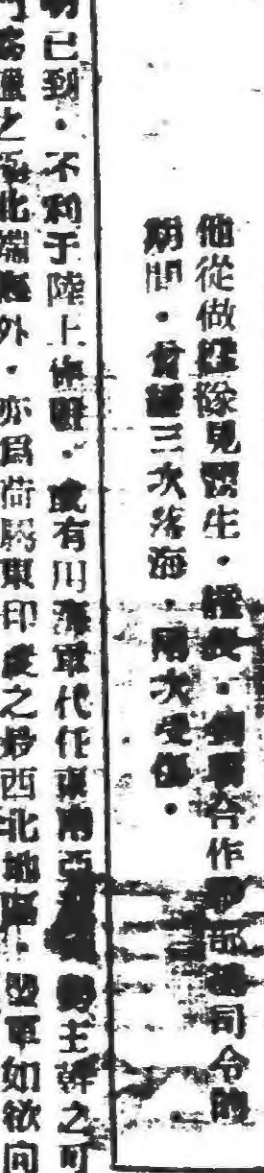 他從做艦隊見習生・艦長・到聯合作戰部總司令的
期間・曾經三次落海・兩次受傷・
已到・不利于陸上作戰・或有用海軍代任東南亞主幹之可
臘之極北端海外・亦爲荷屬東印度之最西北地區・盟軍如欲向